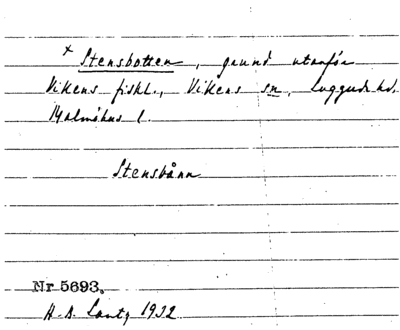 × Stensbotten, grund utanför
Vikens fiskl., Vikens sn, Luggude hd.
Malmöhus l.
Stensbånn
Nr 5693.
H. A. Lantz 1932